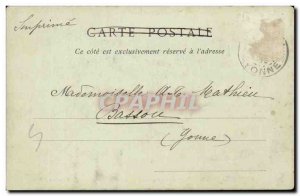 Imprimé
CARTE POSTALE
Ce côté est exclusivement réservé à l'adresse
YONNE
Mademoiselle A. Mathieu
Bassou
(Yonne)